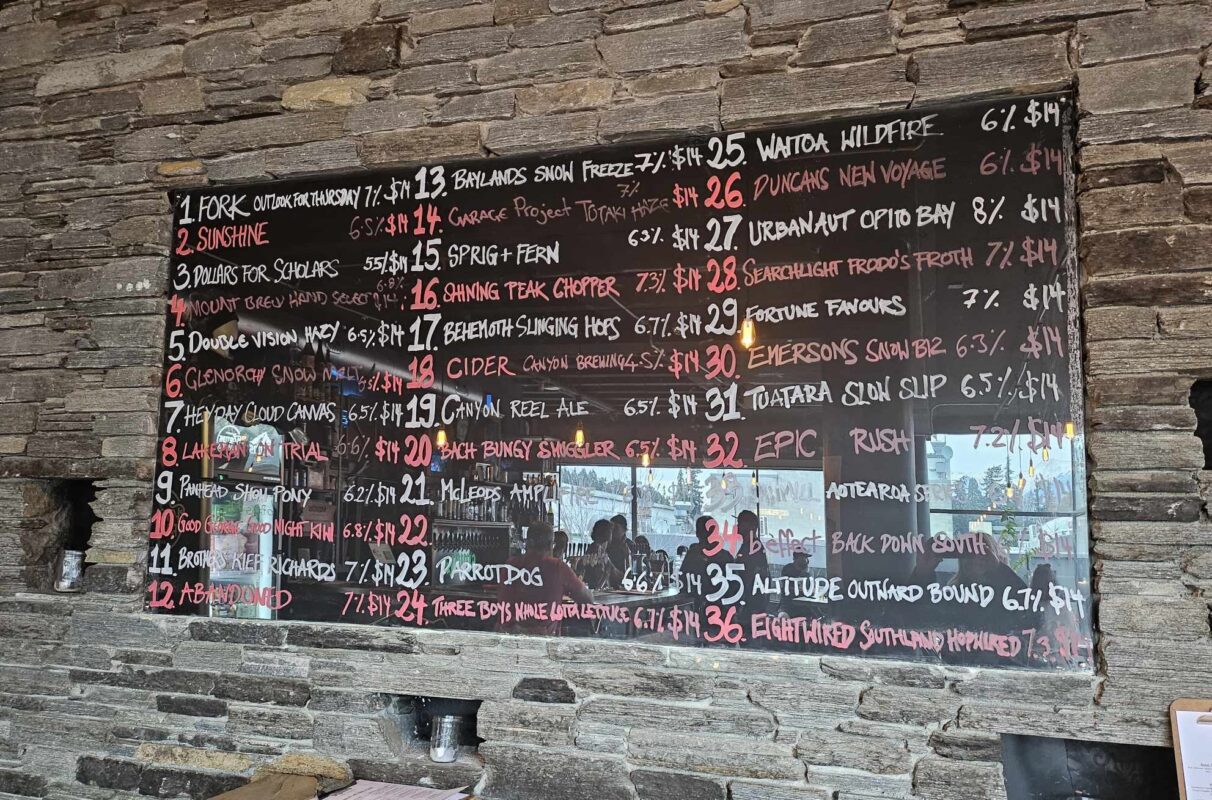 1. FORK OUTLOOK FOR THURSDAY 7% $14
2. SUNSHINE 6.5% $14
3. DOLLARS FOR SCHOLARS 5.5% $14
4. MOUNT BREW HAND SELECT 6.8% $14
5. DOUBLE VISION HAZY 6.5% $14
6. GLENORCHY SNOW MELT $14
7. HEYDAY CLOUD CANVAS 6.5% $14
8. LAKEMAN ON TRIAL 6.6% $14
9. PANHEAD SHOW PONY 6.2% $14
10. GOOD GEORGE GOOD NIGHT KIWI 6.8% $14
11. BROTHERS KIEF RICHARDS 7% $14
12. ABANDONED 7% $14
13. BAYLANDS SNOW FREEZE 7% $14
14. GARAGE PROJECT TOTAKI HAZE 7% $14
15. SPRIG + FERN 6.3% $14
16. SHINING PEAK CHOPPER 7.3% $14
17. BEHEMOTH SLINGING HOPS 6.7% $14
18. CIDER CANYON BREWING 4.5% $14
19. CANYON REEL ALE 6.5% $14
20. BACH BUNGY SMUGGLER 6.5% $14
21. MCLEODS AMPLIFIRE
22.
23. PARROTDOG 6.6% $14
24. THREE BOYS WHOLE LOTTA LETTUCE 6.7% $14
25. WAITOA WILDFIRE 6% $14
26. DUNCANS NEW VOYAGE 6% $14
27. URBANAUT OPITO BAY 8% $14
28. SEARCHLIGHT FRODO'S FROTH 7% $14
29. FORTUNE FAVOURS 7% $14
30. EMERSONS SNOW BIZ 6.3% $14
31. TUATARA SLOW SLIP 6.5% $14
32. EPIC RUSH 7.2% $14
AOTEAROA
34. b.effect BACK DOWN SOUTH $14
35. ALTITUDE OUTWARD BOUND 6.7% $14
36. EIGHTWIRED SOUTHLAND HOPWIRED 7.3